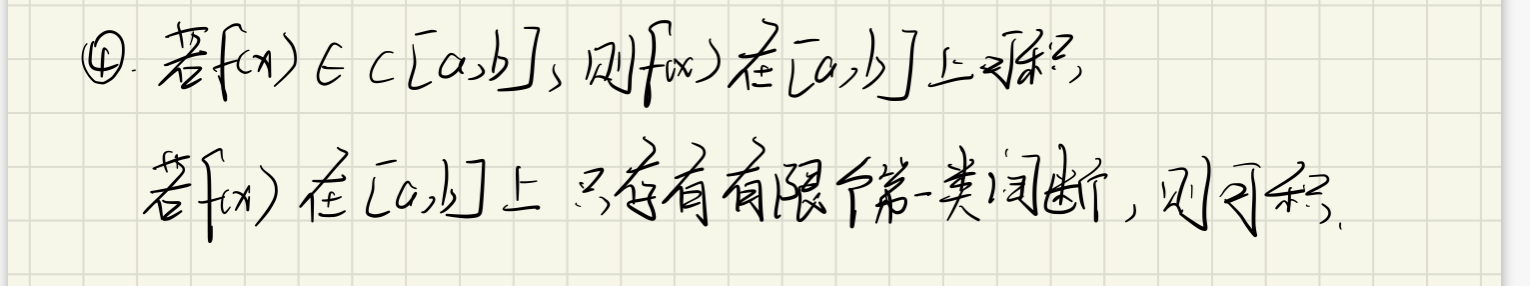 ④. 若f(x)∈C[a,b],则f(x)在[a,b]上可积,
若f(x)在[a,b]上只存有有限个第一类间断,则可积.